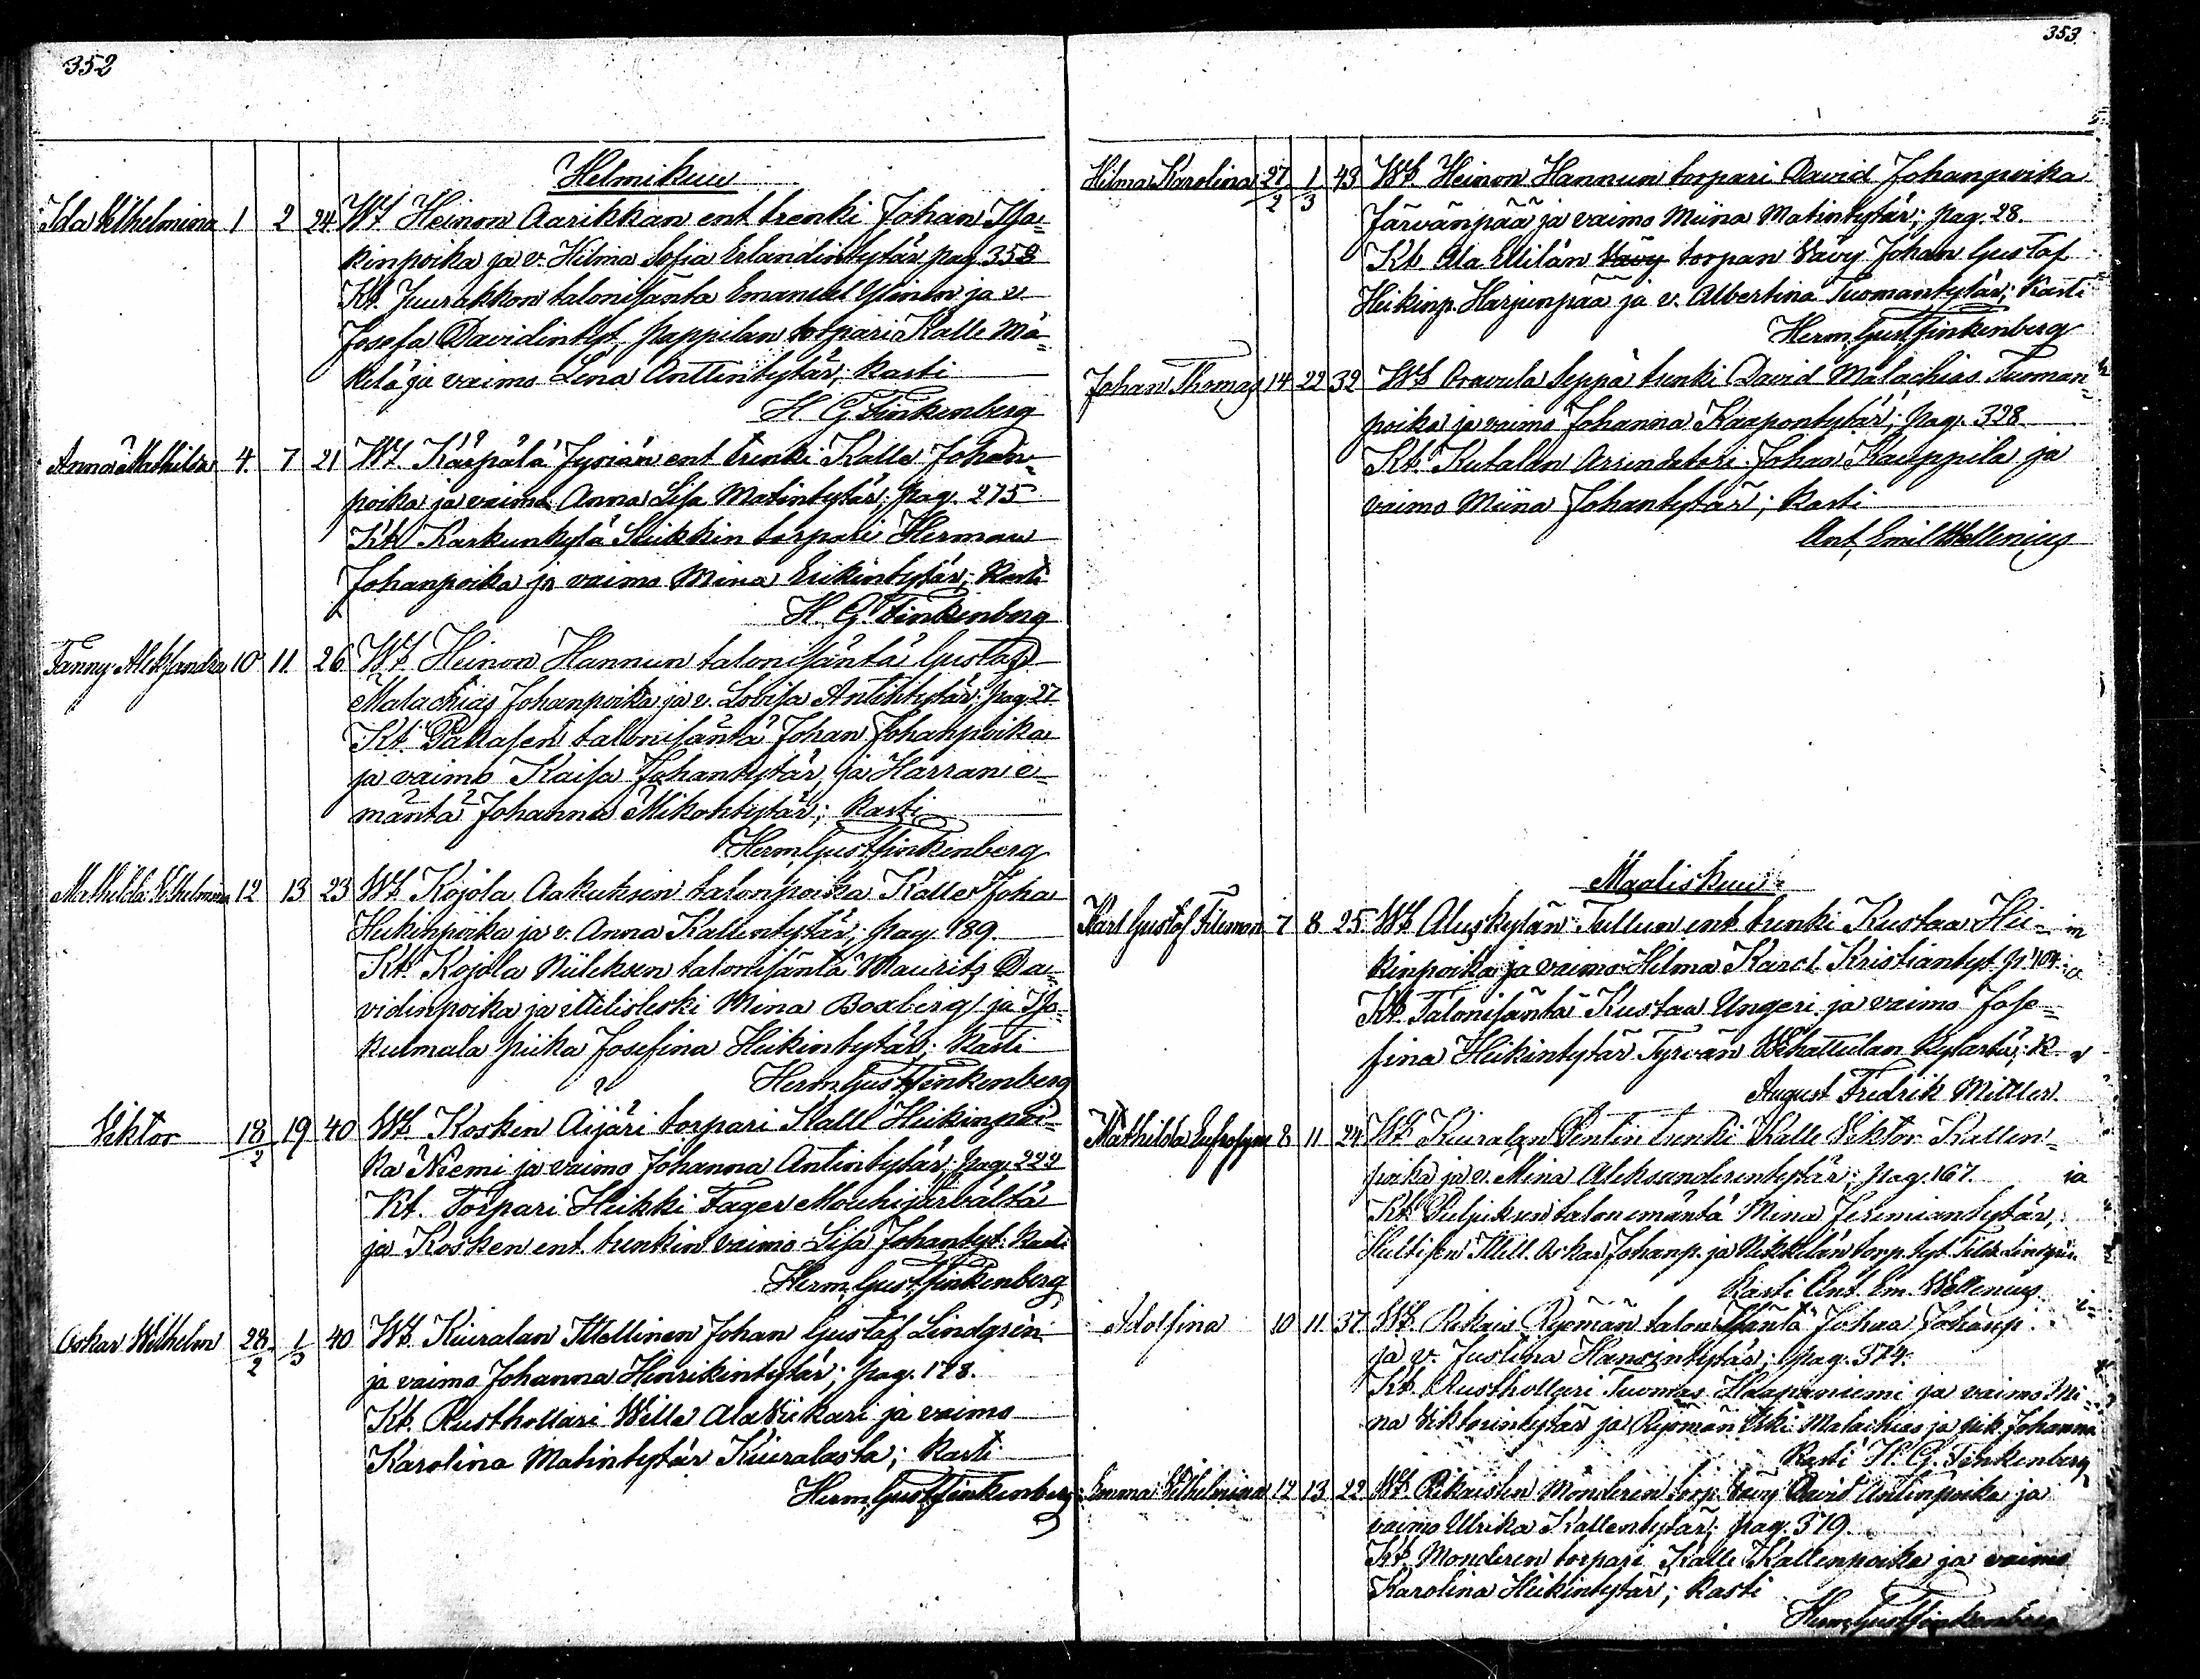 352
Helmikuu
Ida Wilhelmina 1 2 24 Wt Heinon Aarikkan ent trenki Johan Isa-
kinpoika ja v. Hilma Sofia Erlandintytär pag 358
Kt. Juurakkon talonisäntä Emanuel Yli ja v
Josefa Davidintyt, Pappilan torpari Kalle Mä-
kelä ja vaimo Lena Anttintytär; Kasti
H. G. Finkenberg
Anna Mathilda 4 7 21 Wt Kärpälä Jyriän ent trenki Kalle Johan-
poika ja vaimo Anna Lisa Matintytär; pag. 275
Kt Karkunkylä torpari Herman
Johanpoika ja vaimo Mina Erikintytär; Kasti
H. G. Finkenberg
Fanny Aleksandra 10 11 26 Wt Heinon Hannun talonisäntä Gustaf
Malachias Johanpoika ja v. Lovisa Antintytär; pag. 27
Kt. talonisäntä Johan Johanpoika
ja vaimo Kaisa Johantytär, ja Harran e-
mäntä Johanna Mikontytär; Kasti
Herm. Gust. Finkenberg
Mathilda Wilhelmina 12 13 23 Wt Kojola talonpoika Kalle Joha
Heikinpoika ja v. Anna Kallentytär; pag. 189.
Kt. Kojola talonisäntä Maurits Da-
vidinpoika ja Mina Boxberg ja Iso-
kulmala piika Josefina Heikintytär; Kasti
Herm. Gust. Finkenberg
Viktor 18/2 19 40 Wt Kosken Äijäri torpari Kalle Heikinpoi-
ka Niemi ja vaimo Johanna Antintytär; pag. 222
Kt. Torpari Heikki Fager Mouhijärvältä
ja Kosken ent. trenkin vaimo Lisa Johantyt. Kasti
Herm. Gust. Finkenberg
Oskar Wilhelm 28/2 1/3 40 Wt. Kiuralan Itsellinen Johan Gustaf Lindgren
ja vaimo Johanna Henrikintytär; pag. 178.
Kt. Rusthollari Wille Ala Vikari ja vaimo
Karolina Matintytär Kiuralasta; Kasti
Herm. Gust. Finkenberg
353.
Hilma Karolina 27/2 1/3 43 Wt. Heinon Hannun torpari David Johanpoika
Järvänpää ja vaimo Miina Matintytär; pag. 28.
Kt Ala Uitilän Vävy torpan Vävy Johan Gustaf
Heikinp. Harjunpää ja v. Albertina Tuomantytär; Kasti
Herm. Gust. Finkenberg
Johan Thomas 14 22 32 Wt Oravula Seppä trenki David Malachias Tuoman-
poika ja vaimo Johanna Kaapontytär; pag. 328.
Kt. Kutalan Arrendatori Johan Kauppila ja
vaimo Miina Johantytär; Kasti
Ant. Emil Wellenius
Maaliskuu
Karl Gustof Filemon 7 8 25 Wt. Aluskylän Tullun ent trenki Kustaa Hei-
kinpoika ja vaimo Hilma Karol. Kristiantyt. p. 104
Kt. Talonisäntä Kustaa Ungeri ja vaimo Jose-
fina Heikintytär Tyrvän Wehattulan kylästä; K
August Fredrik Mittler
Mathilda Eufrosyne 8 11 24 Wt. Kiuralan Pentin trenki Kalle Viktor Kallen-
poika ja v. Mina Aleksanderentytär; pag. 167.
Kt. talonemäntä Mina Jeremiantytär,
Itsell. Oskar Johanp. ja torp. tyt. Lindgren
Kasti Ant. Em. Wellenius
Adolfina 10 11 37 Wt. Rekais Ryömän talonisäntä Johan Johanp.
ja v. Justina Hansintytär; pag. 374.
Kt. Rusthollari Tuomas Haapaniemi ja vaimo Mi-
na Viktorintytär ja Ryömän Malachias ja piik. Johanna
Kasti H. G. Finkenberg
Emma Wilhelmina 12 13 22 Wt. Rekaisten Monderen torp. Vävy David Antinpoika ja
vaimo Ulrika Kallentytär; pag. 379.
Kt. Monderen torpari Kalle Kallenpoika ja vaimo
Karolina Heikintytär; Kasti
Herm. Gust. Finkenberg